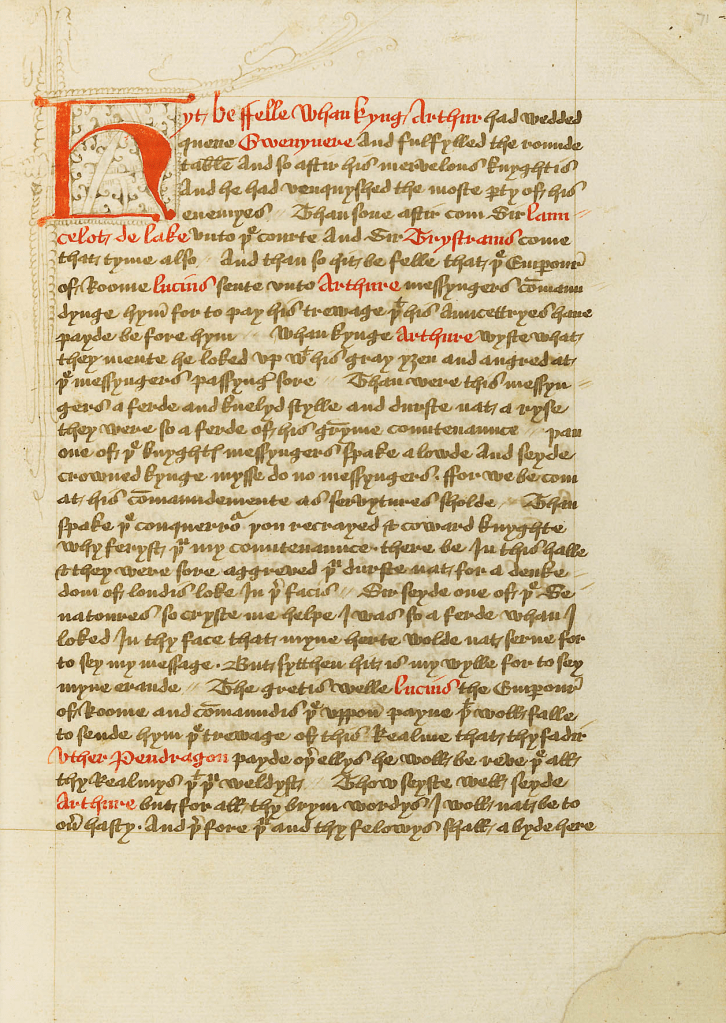 71
Hyt be ffelle whan kyng Arthur had wedded
quene Gwenyvere And fulfylled the rounde
table And so aftir his mervelous knyghtis
And he had venquyshed the moste pty of his
enemyes // Than sone aftir com Sir Laun
celot de lake vnto þe courte And Sir Trystrams come
that tyme also // And than so hit be felle that þe Emperour
of Roome lucius sente vnto Arthure messyngers cōmaun
dynge hym for to pay his trewage þt his Auncettryes have
payde be fore hym // Whan kynge Arthure wyste what
they mente he loked vp wt his gray yȝen and angred at
þe messyngers passyng sore // Than were this messyn
gers a ferde and knelyd stylle and durste nat a ryse
they were so a ferde of his gryme countenaunce // þan
one of þe knyghtis messyngers spake alowde And seyde
crowned kynge mysse do no messyngers. ffor we be com
at his cōmaundemente as servytures sholde // Than
spake þe conquerrour þou recrayed & coward knyghte
why feryst þu my countenaunce. there be In this halle
& they were sore aggreved þu durste nat for a deuke
dom of londis loke In þer facis // Sir seyde one of þe Se
natoures so cryste me helpe I was so a ferde whan I
loked In thy face that myne herte wolde nat serve for
to sey my message. But sytthen hit is my wylle for to sey
myne erande // The gretis welle lucius the Emperour
of Roome and cōmaundis þe vppon payne þt woll falle
to sende hym þe trewage of this Realme that thy fadir
Vther Pendragon payde oþer ellys he woll be reve þe all
thy Realmys þt þu weldyst // Thow seyste well seyde
Arthure but for all thy brym wordys I woll nat be to
oū hasty. And þerfore þu and thy felowys shall a byde here